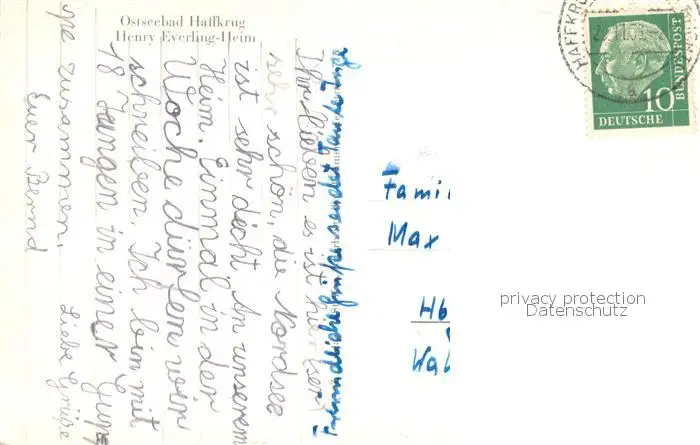 Ostseebad Haffkrug
Henry Everling-Heim
Ihr lieben es ist hier (ser)
sehr schön, die Nordsee
ist sehr dicht An unserem
Heim. Einmal in der
Woche dürfen wir
schreiben. Ich bin mit
18 Jungen in einer Grup
pe zusammen.
Liebe Grüße
Euer Bernd
sendet Tante Inge
Fami
Max
Hb
HAFFKRU
DEUTSCHE
BUNDESPOST
10
privacy protection
Datenschutz